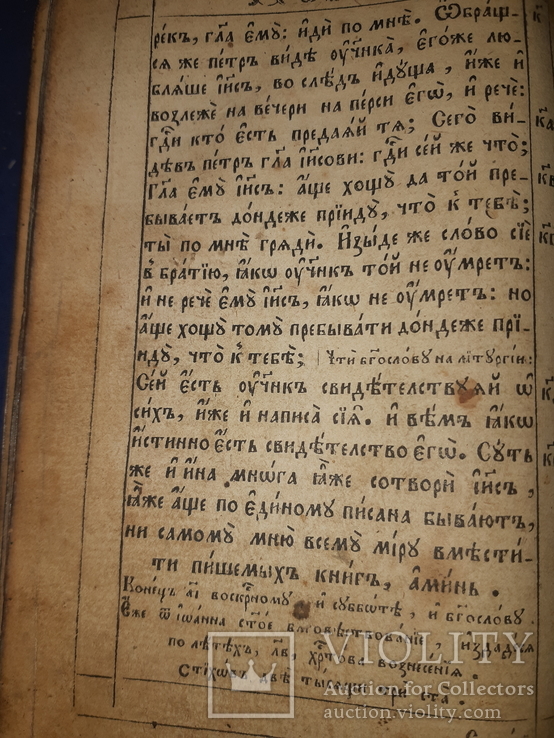 ре́къ, гл҃а є҆мꙋ̀: и҆дѝ по мнѣ̀. Ѡ҆бра́щ-
сѧ же пе́тръ ви́дѣ ᲂу҆ченика̀, є҆го́же лю-
бляше і҆и҃съ, во слѣ́дъ и҆дꙋ́ща, и҆́же и҆
возлежѐ на ве́чери на пе́рси є҆гѡ̀, и҆ речѐ:
гдⷭ҇и кто̀ є҆́сть предаѧ́й тѧ̀; Сего̀ ви-
дѣвъ пе́тръ гл҃а і҆и҃сови: гдⷭ҇и се́й же что̀;
Гл҃а є҆мꙋ̀ і҆и҃съ: а҆́ще хощꙋ̀ да то́й пре-
быва́етъ до́ндеже прїидꙋ̀, что̀ к̾ тебѣ̀;
ты̀ по мнѣ̀ грѧдѝ. И҆зы́де же сло́во сїѐ
в̾ бра́тїю, ꙗ҆́кѡ ᲂу҆чн҃къ то́й не ᲂу҆́мретъ:
и҆ не речѐ є҆мꙋ̀ і҆и҃съ, ꙗ҆́кѡ не ᲂу҆́мретъ: но
а҆́ще хощꙋ̀ томꙋ̀ пребыва́ти до́ндеже прїи-
идꙋ̀, что̀ к̾ тебѣ̀; Чтѝ бг҃ослѡвꙋ на лїтꙋргїи:
Се́й є҆́сть ᲂу҆чн҃къ свидѣ́телствꙋѧй ѡ҆
си́хъ, и҆́же и҆ написа̀ сїѧ̑. и҆ вѣ́мъ ꙗ҆́кѡ
и҆́стинно є҆́сть свидѣ́телство є҆гѡ̀. Сꙋ́ть
же и҆ и҆́на мнѡ́га ꙗ҆̀же сотворѝ і҆и҃съ,
ꙗ҆̀же а҆́ще по є҆ди́номꙋ пи́сана быва́ютъ,
ни самомꙋ̀ мню̀ всемꙋ̀ мі́рꙋ вмѣсти́-
ти пи́шемыхъ кни́гъ, а҆ми́нь.
Коне́цъ а҃і воскр҇номꙋ и҆ сꙋббѡ́тѣ, и҆ бг҃осло́вꙋ.
Є҆́же ѿ і҆ѡа́нна ст҃о́е бл҃говѣ́ствованїе, и҆здадесѧ
по лѣ́тѣхъ, л҃в, хрⷭ҇то́ва вознесе́нїѧ.
Стїхѡ́въ двѣ̀ ты́сѧщи три́ ста.
VIOLITY
Auction for Collectors
auction.violity.com